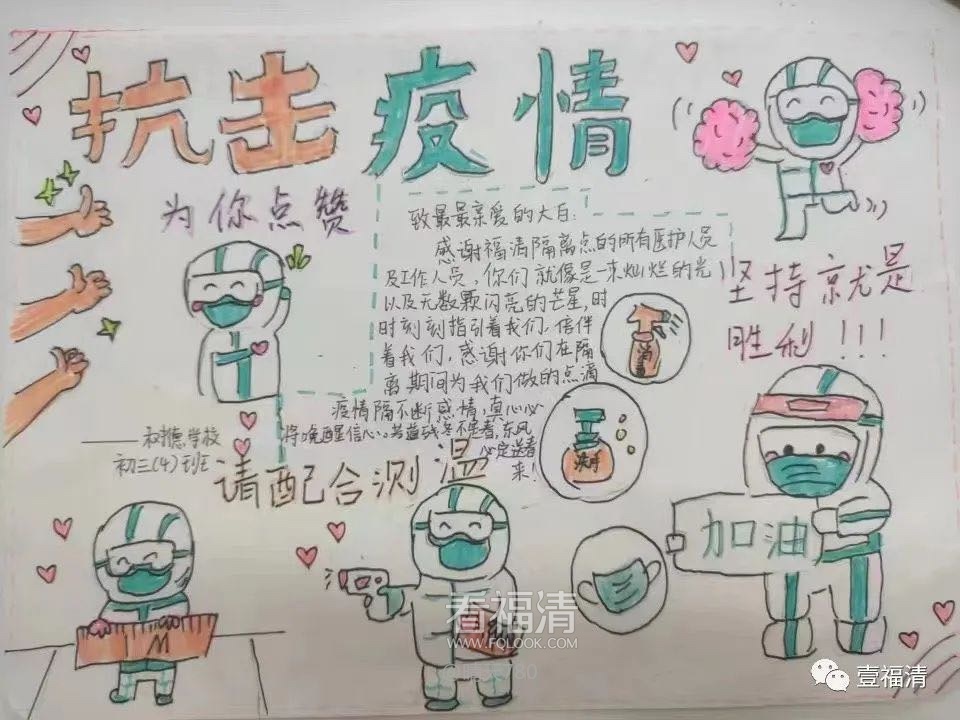 抗击疫情
为你点赞
致最最亲爱的大白:
感谢福清隔离点的所有医护人员
及工作人员,你们就像是一束灿烂的光
以及无数颗闪亮的芒星,时
时刻刻指引着我们,陪伴
着我们,感谢你们在隔
离期间为我们做的点滴
疫情隔不断感情,真心必
将唤醒信心。若道残冬不
东风
必定送春
来!
坚持就是
胜利!!!
消
洗手
德学校
初三(4)班
请配合测温
加油
看福清
WWW.FQLOOK.COM
壹福清